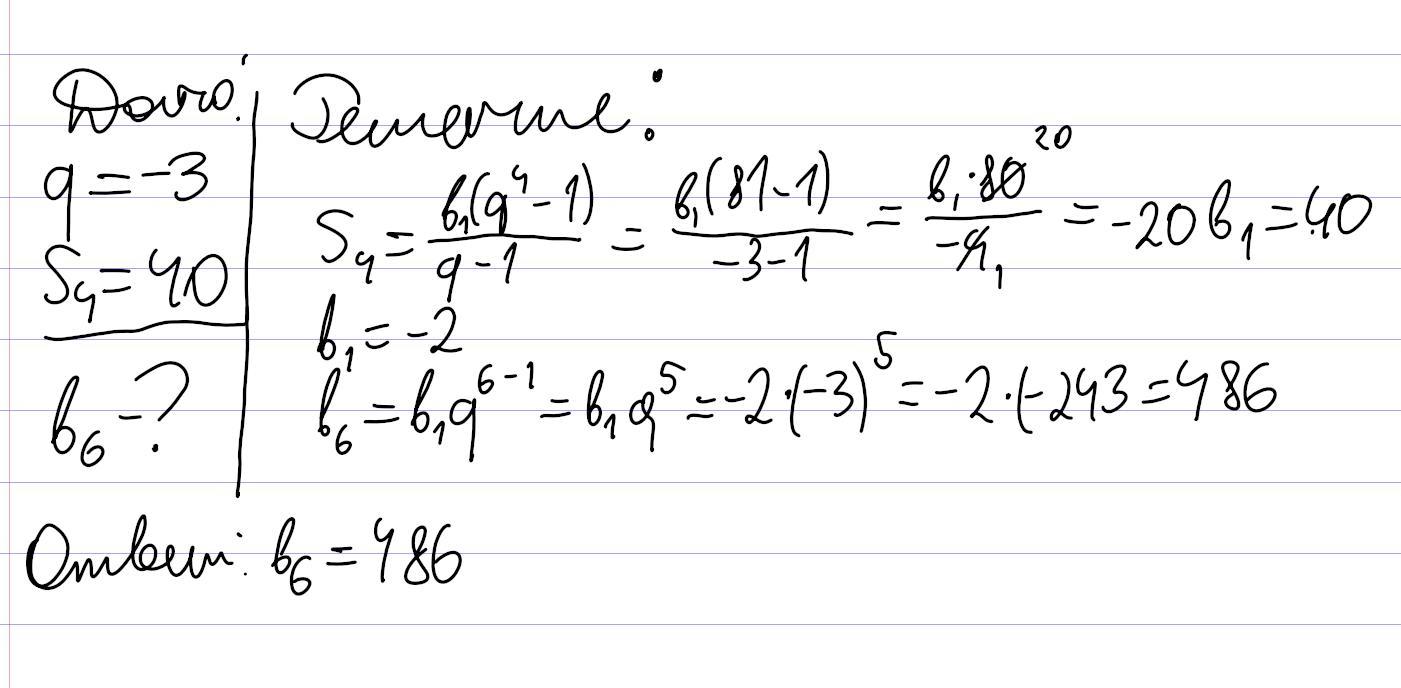 Дано:
q = -3
S₄ = 40
b₆ - ?
Решение:
S₄ = b₁(q⁴ - 1) / (q - 1) = b₁(81 - 1) / (-3 - 1) = b₁·80 ²⁰ / -4 ₁ = -20b₁ = 40
b₁ = -2
b₆ = b₁q⁶⁻¹ = b₁q⁵ = -2·(-3)⁵ = -2·(-243 = 486
Ответ: b₆ = 486